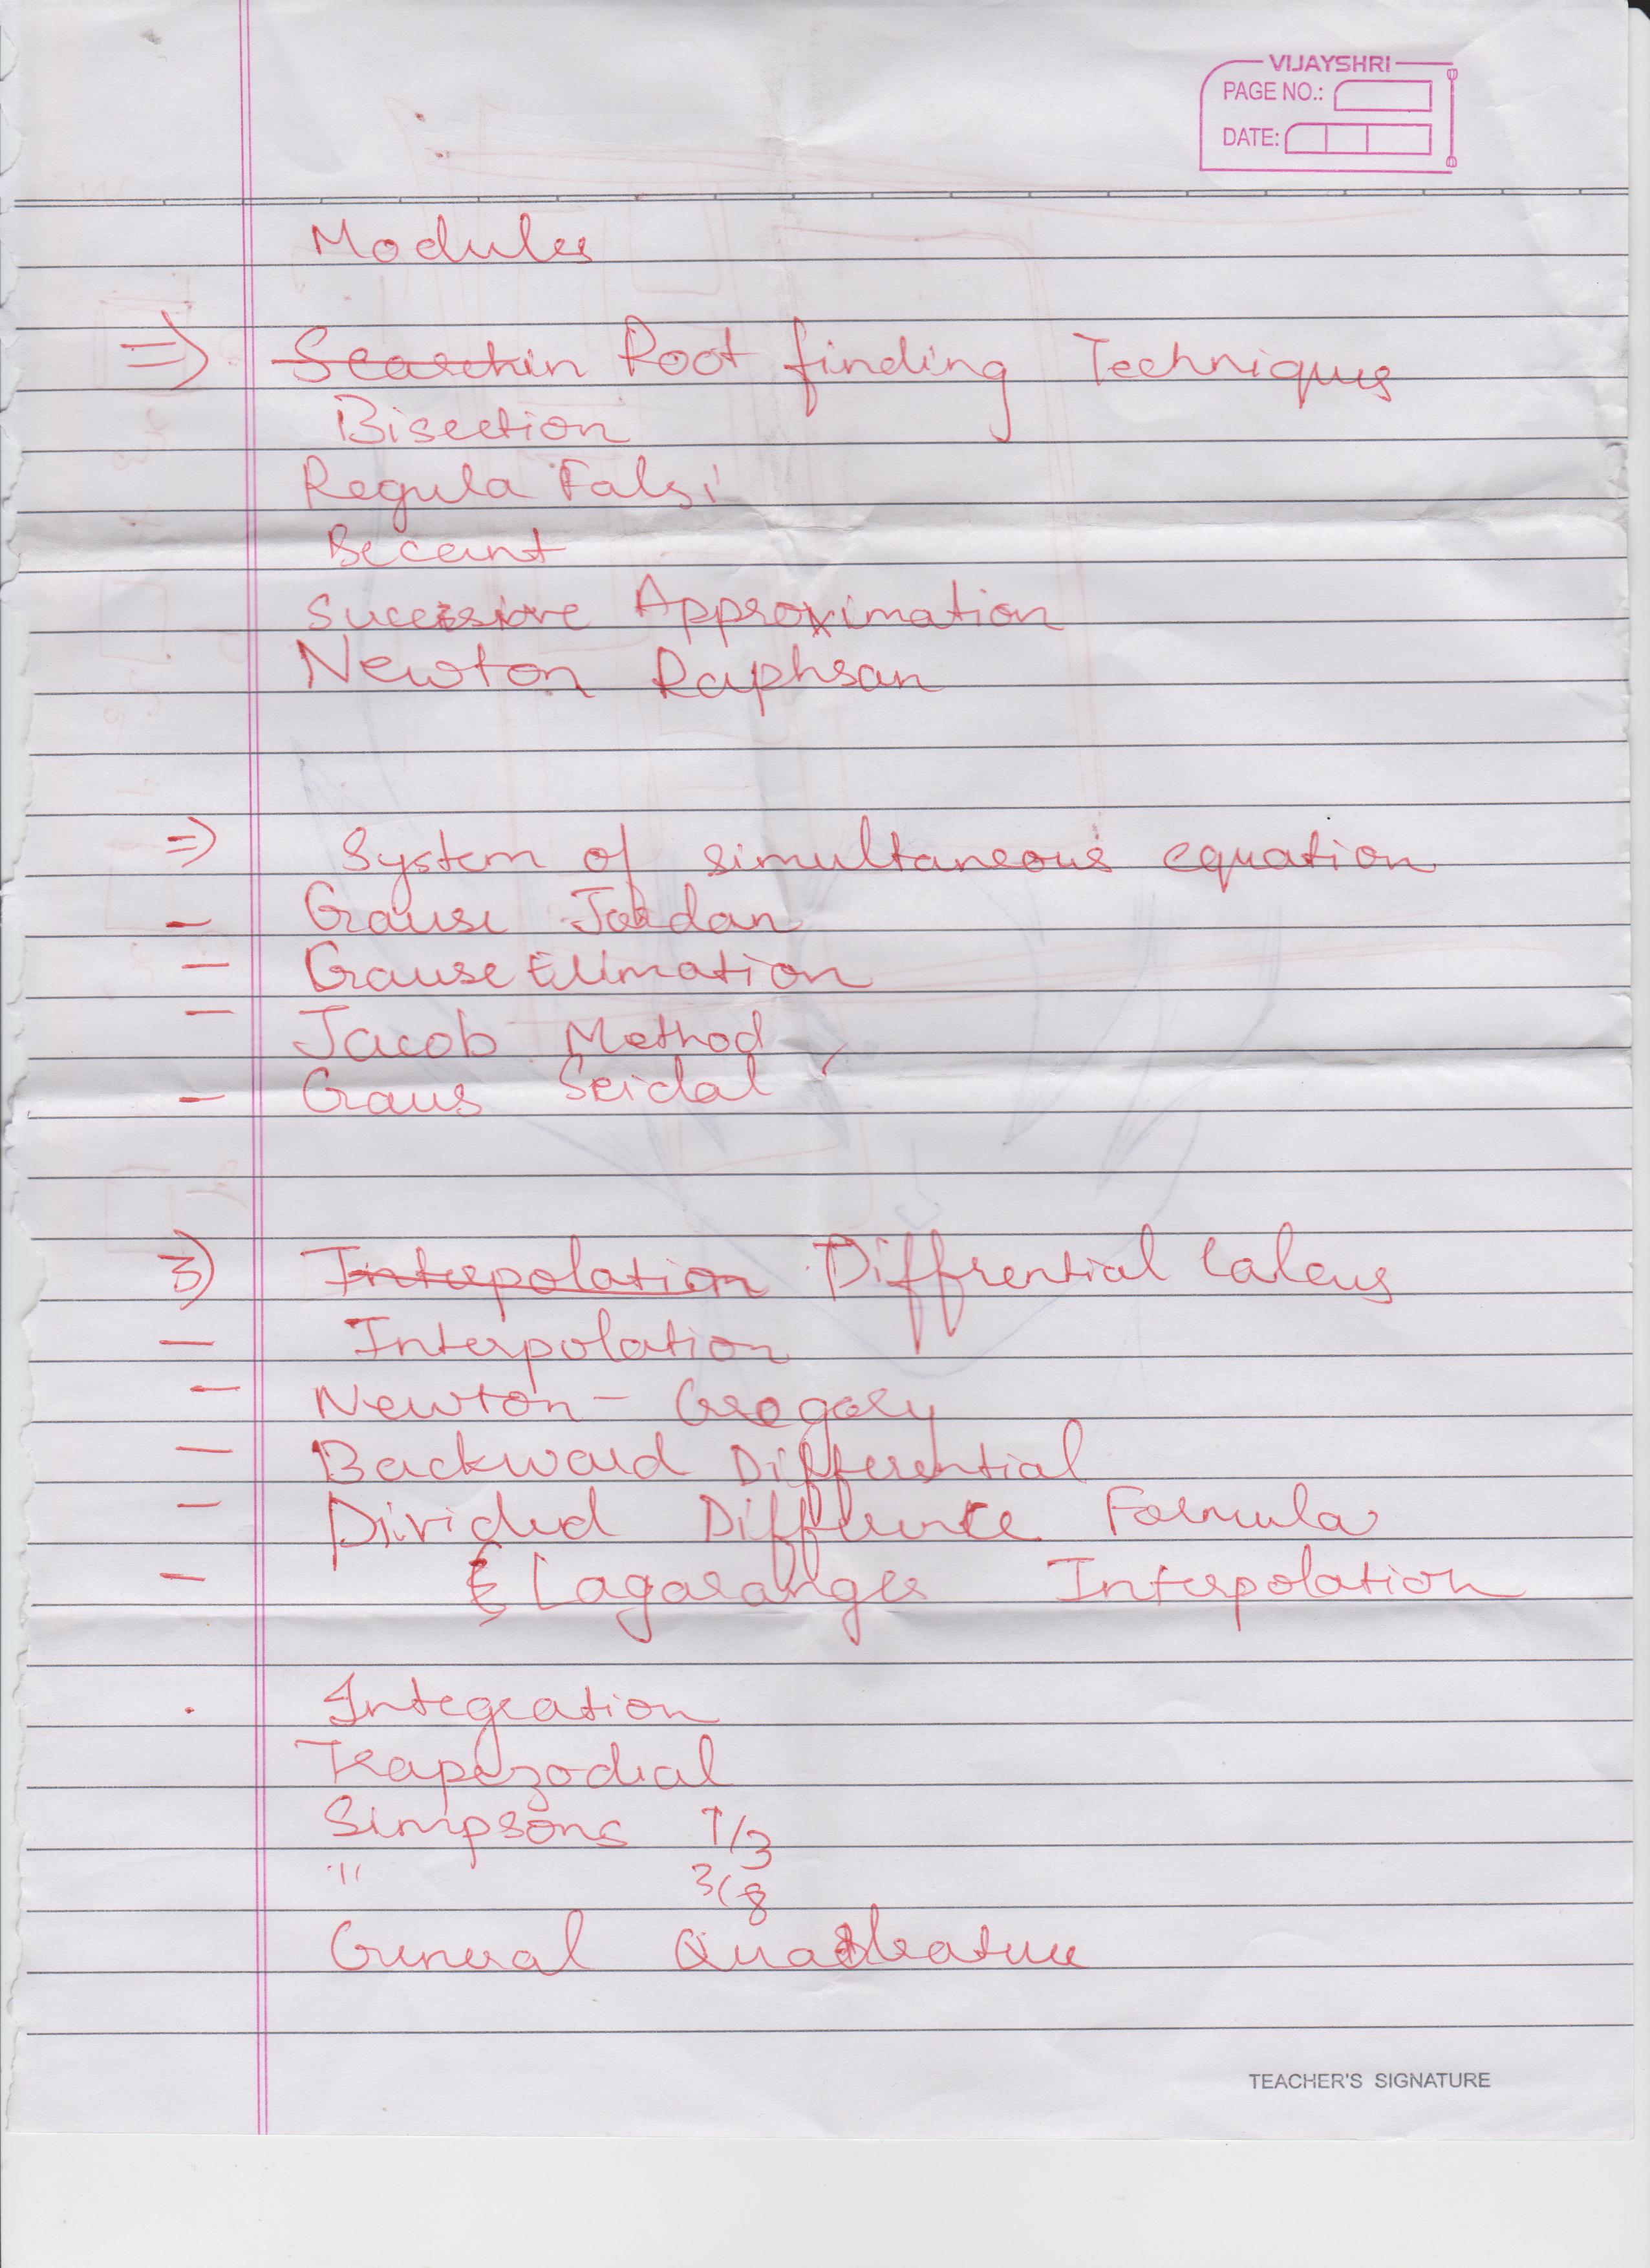 VIJAYSHRI
PAGE NO.:
DATE:
Modules
=> Searchin Root finding Techniques
Bisection
Regula Falsi
Secant
Sucessive Approximation
Newton Raphsan
=> System of simultaneous equation
- Gause Jordan
- Gause Elimation
- Jacob Method
- Gaus Seidal
3) Interpolation Diffrential Calcus
- Interpolation
- Newton - Grogary
- Backward Differential
- Divided Difference Formula
- & Lagaranges Interpolation
. Integration
Trapezodial
Simpsons 1/3
" 3/8
General Quadrature
TEACHER'S SIGNATURE